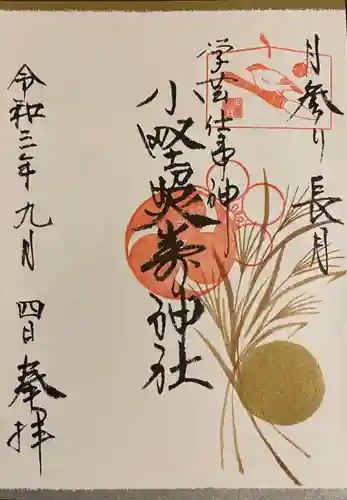 月参り 長月
学芸仕事神
小野照崎神社
令和三年九月 四日 奉拝